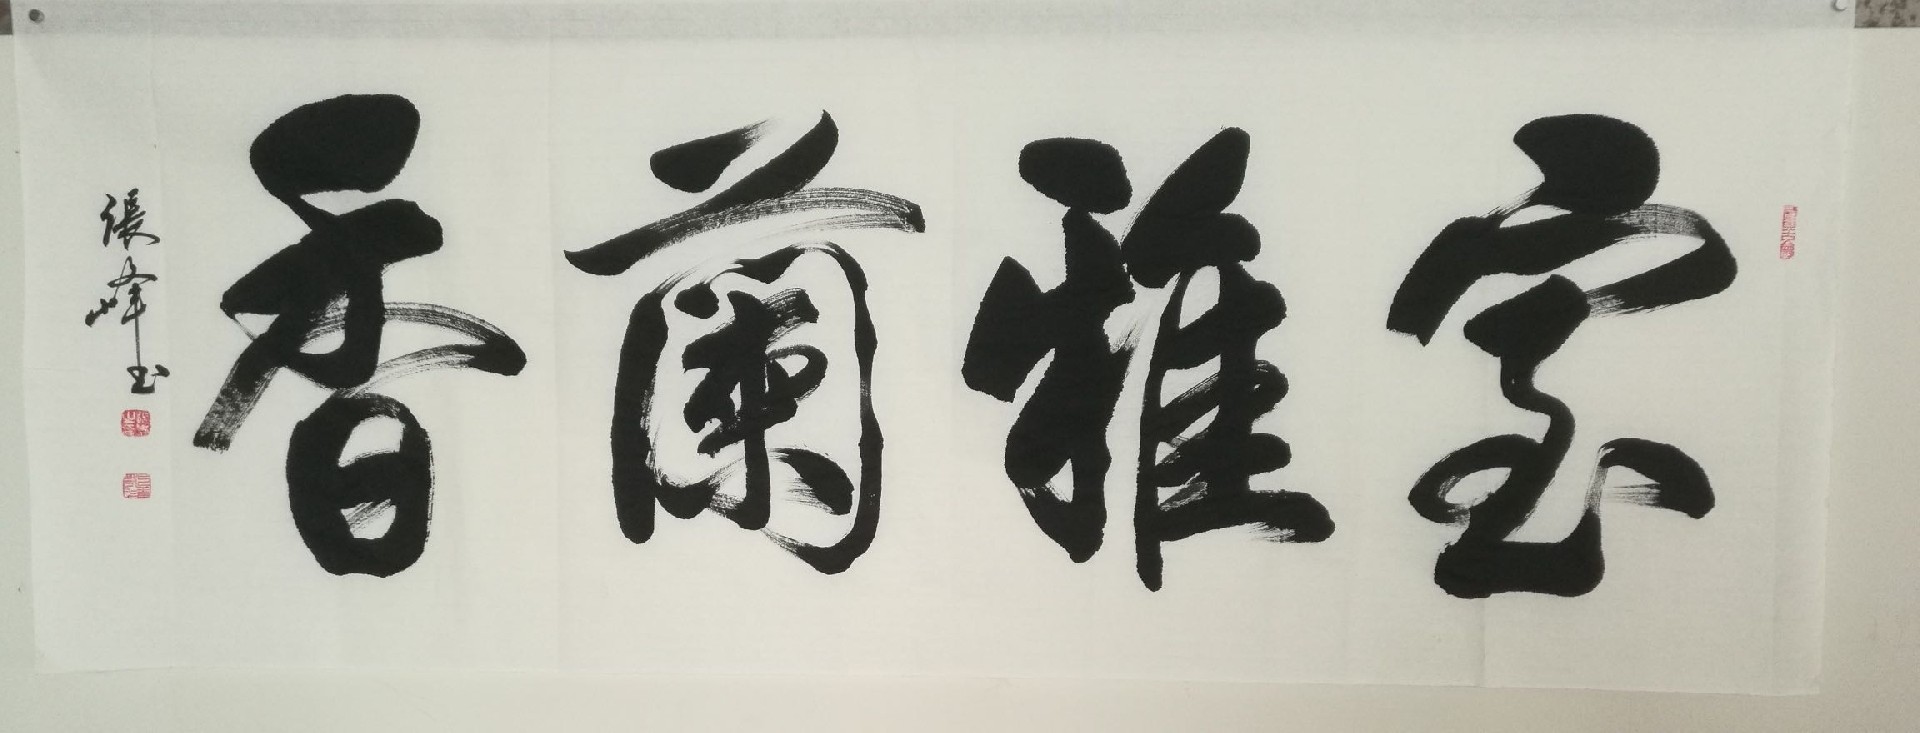 室雅蘭香
張峰玉